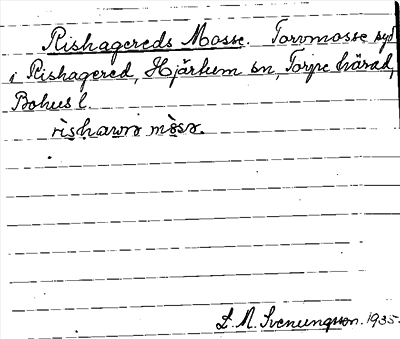 Rishagereds Mosse. Torvmosse syd
i Rishagered, Hjärtum sn, Torpe härad,
Bohusl.
rishawrə mòsə.
S. M. Svenungsson. 1935.